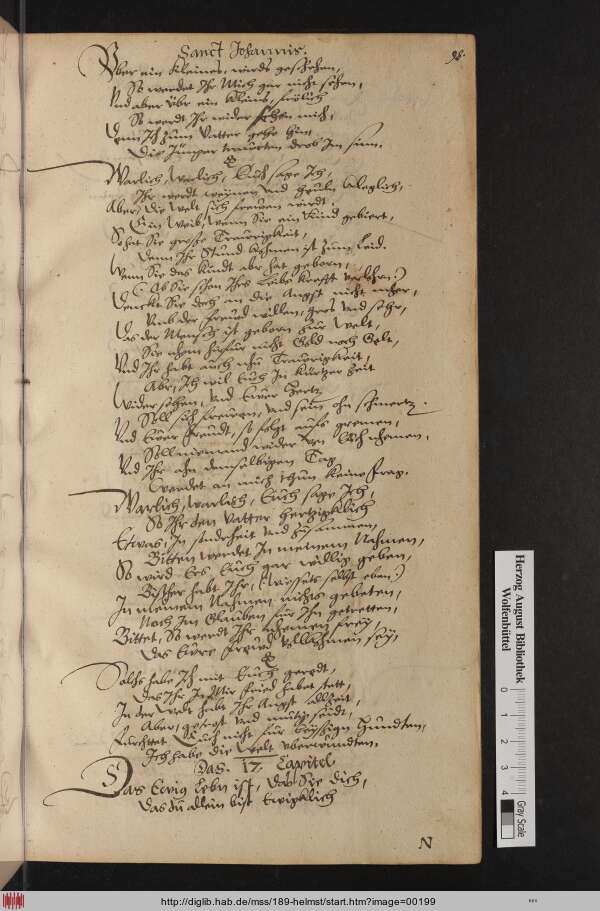 Sanct Johannis.
98.
Vber ein kleines, wirds geschehen,
So werdet Ihr Mich gar nicht sehen,
Vnd aber vbr ein kleins, frölich
So werdt Ihr wider sehen mich,
Denn Ich zum Vatter gehe hin,
Die Jünger traurten drob Im sinn.
Warlich, warlich, Euch sage Ich,
Ihr werdt weynen vnd heuln kleglich,
Aber, die welt sich freuen wirdt.
Ein Weib, wenn Sie ein kind gebiert,
So hat Sie grosse Traurigkeit,
Denn Ihr Stund kohmen ist zum Leid.
Wenn Sie das kindt abr hat geborn,
(Ob Sie schon Ihrs Leibs krefft verlohrn)
Denckt Sie doch an die Angst nicht mher,
Vmb der freud willen, gros vnd sehr,
Das der Mensch ist geborn zur welt,
Sie nhem hiefur nicht Gold noch Gelt,
Vnd Ihr habt auch nhu Traurigkeit,
Aber, Ich wil Euch In kurtzer Zeit
Wider sehen, vnd Ewer Hertz
Soll sich freuen, vnd sein ohn schmertz.
Vnd Ewer Freudt, so folgt aufs gremen,
Soll niemand wider von Euch nhemen.
Vnd Ihr ahn demselbigen Tag
Werdet an mich thun keine frag.
Warlich, warlich, Euch sage Ich,
So Ihr den Vatter hertziglich
Etwas, In sonderheit vnd zusammen,
Bitten werdet In meinem Nahmen,
So wird Ers Euch gar willig geben,
Bisher habt Ihr, (wissets selbst eben)
In meinem Nahmen nichts gebeten,
Noch Im Glauben fur Ihn getretten,
Bittet, So werdt Ihr nhemen frey,
Das Ewre Freud vollkohmen sey,
Solchs habe Ich mit Euch geredt,
Das Ihr In Mir fried habet stett,
In der Welt habt Ihr Angst allzeit,
Aber, getrost vnd mutig seidt,
Furchttet Euch nicht fur
Ich habe die Welt vberwundten.
Das. 17. Capitel.
Das Ewig Lebn ist, das Sie dich,
Das du allein bist Ewiglich
N
Herzog August Bibliothek
Wolfenbüttel
0 1 2 3 4
Gray Scale
http://diglib.hab.de/mss/189-helmst/start.htm?image=00199